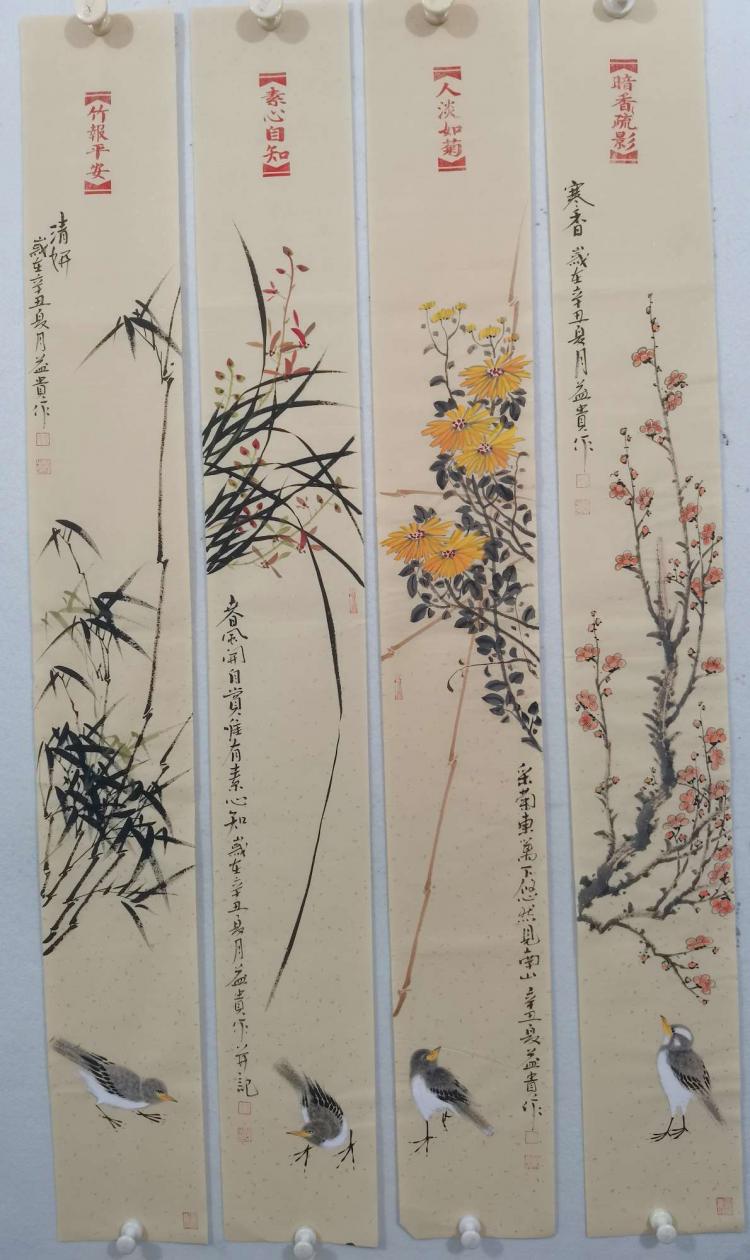 竹報平安
清妍
歲在辛丑夏月益貴作
素心自知
春風開自賞惟有素心知 歲在辛丑夏月益貴作并記
人淡如菊
采菊東籬下悠然見南山 辛丑夏益貴作
暗香疏影
寒香 歲在辛丑夏月益貴作